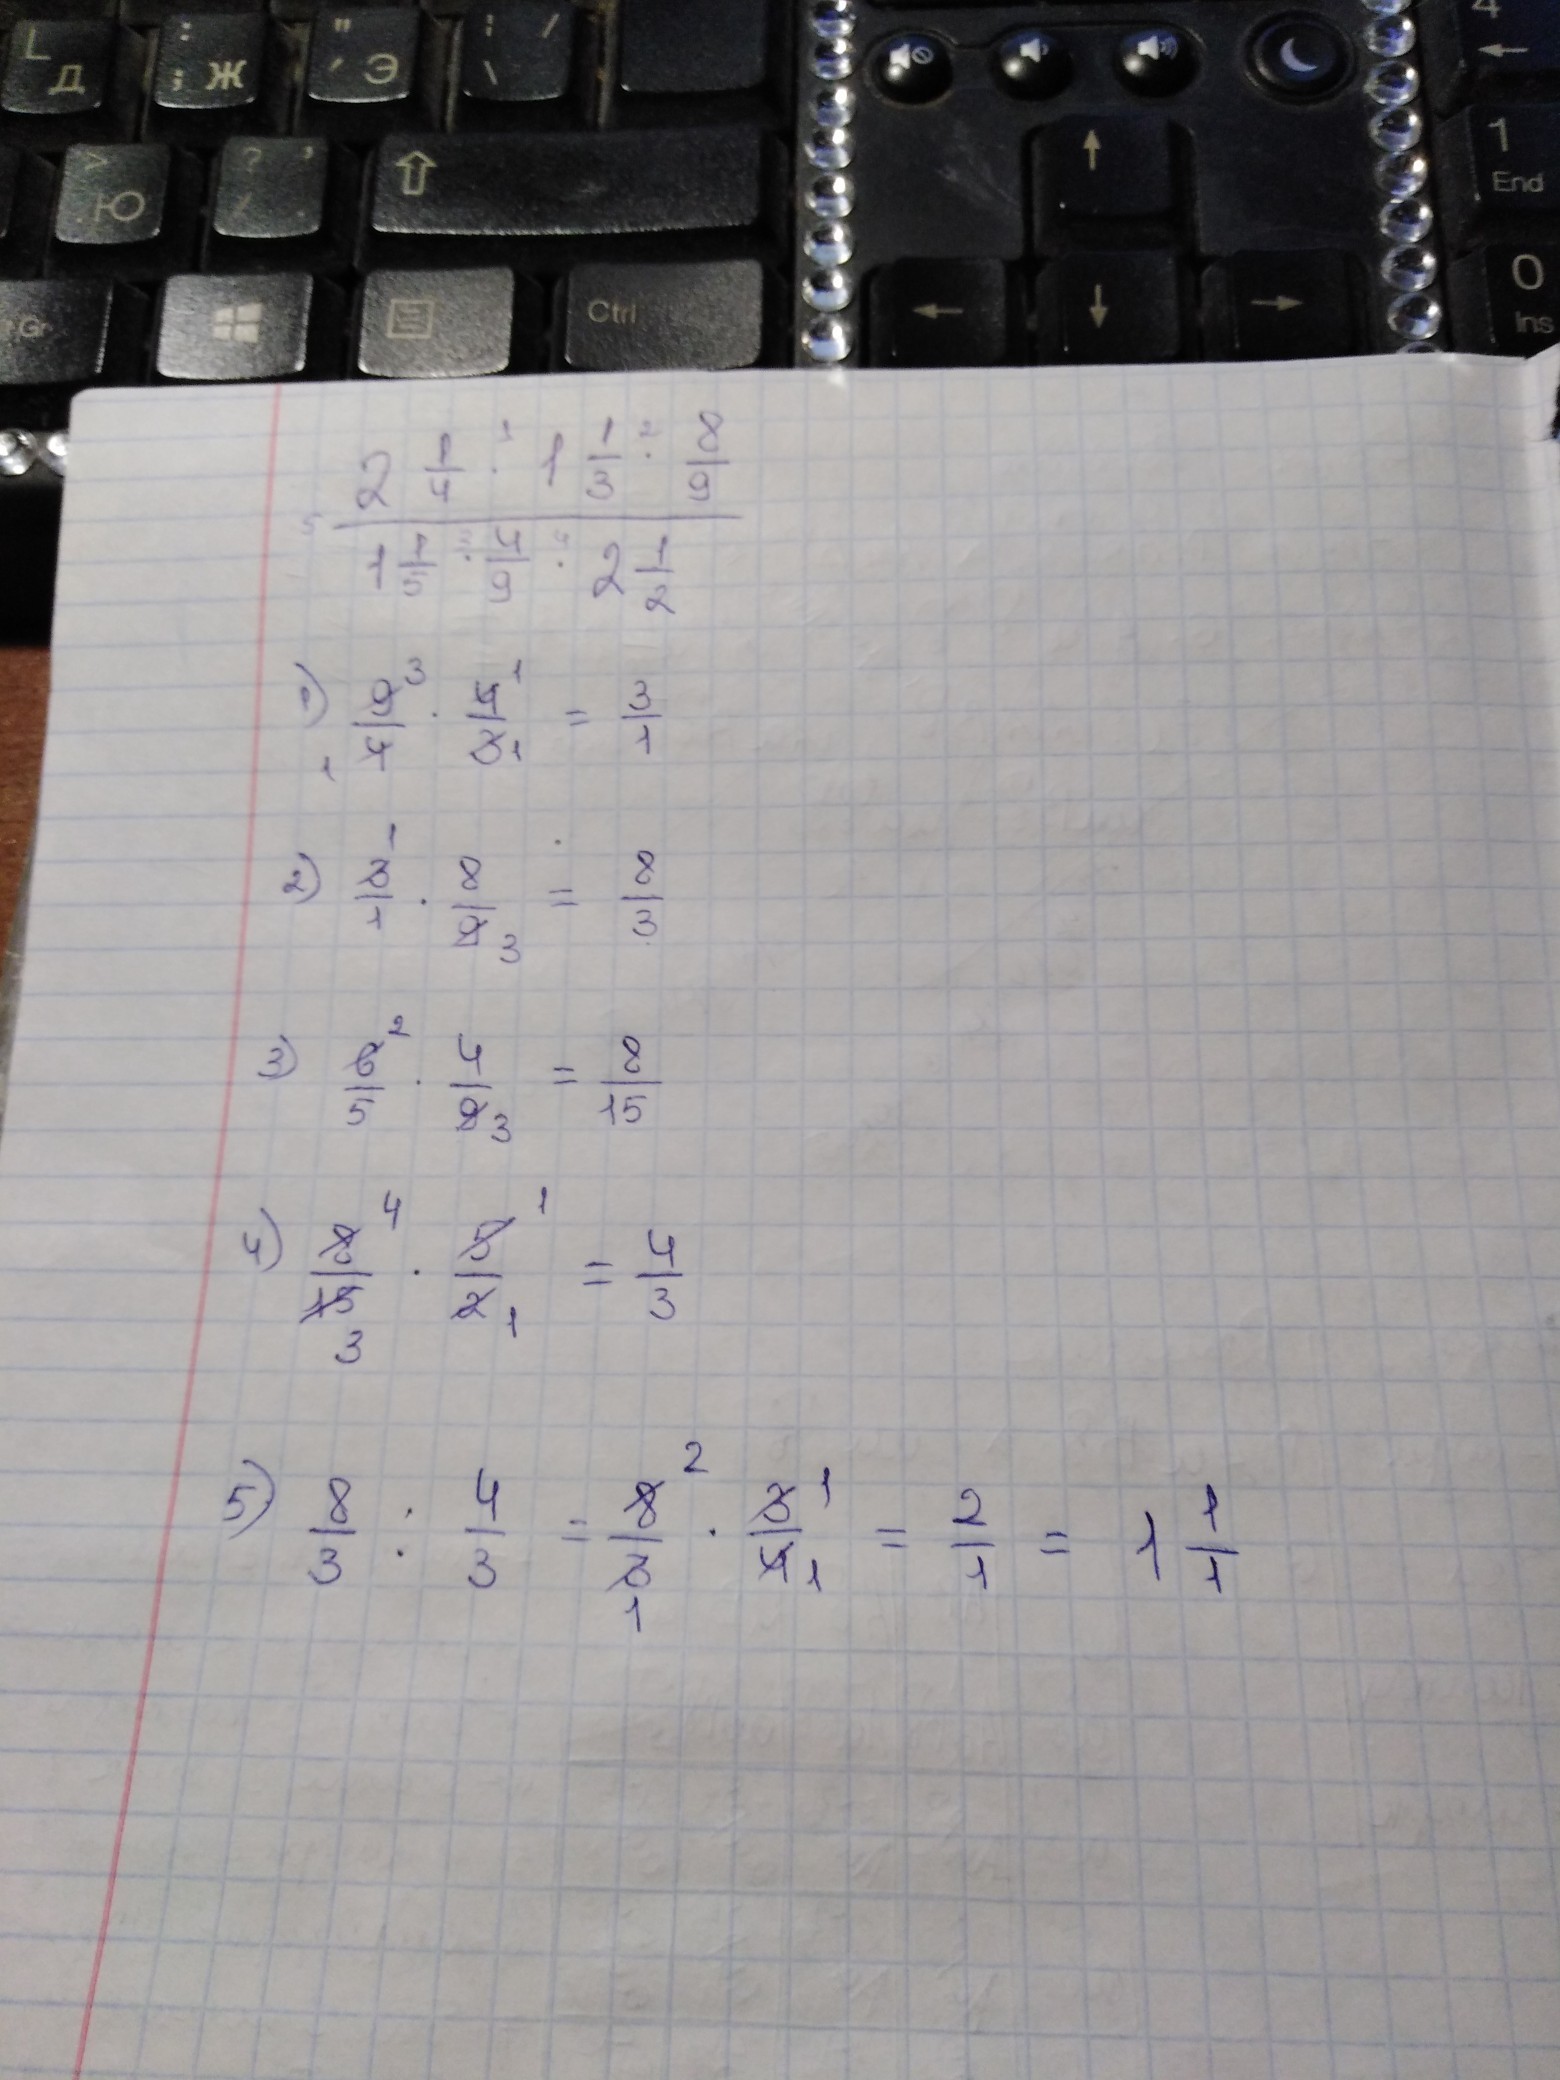 L Д : ; Ж " ' Э ; / \
4
> . Ю ? , / .
1 End
Gr Ctrl
0 Ins
2 1/4 · 1 1/3 · 8/9
1 1/5 · 4/9 · 2 1/2
1) 9/4 · 4/3 = 3/1
2) 3/1 · 8/9 = 8/3
3) 6/5 · 4/9 = 8/15
4) 8/15 · 5/2 = 4/3
5) 8/3 : 4/3 = 8/3 · 3/4 = 2/1 = 1 1/1